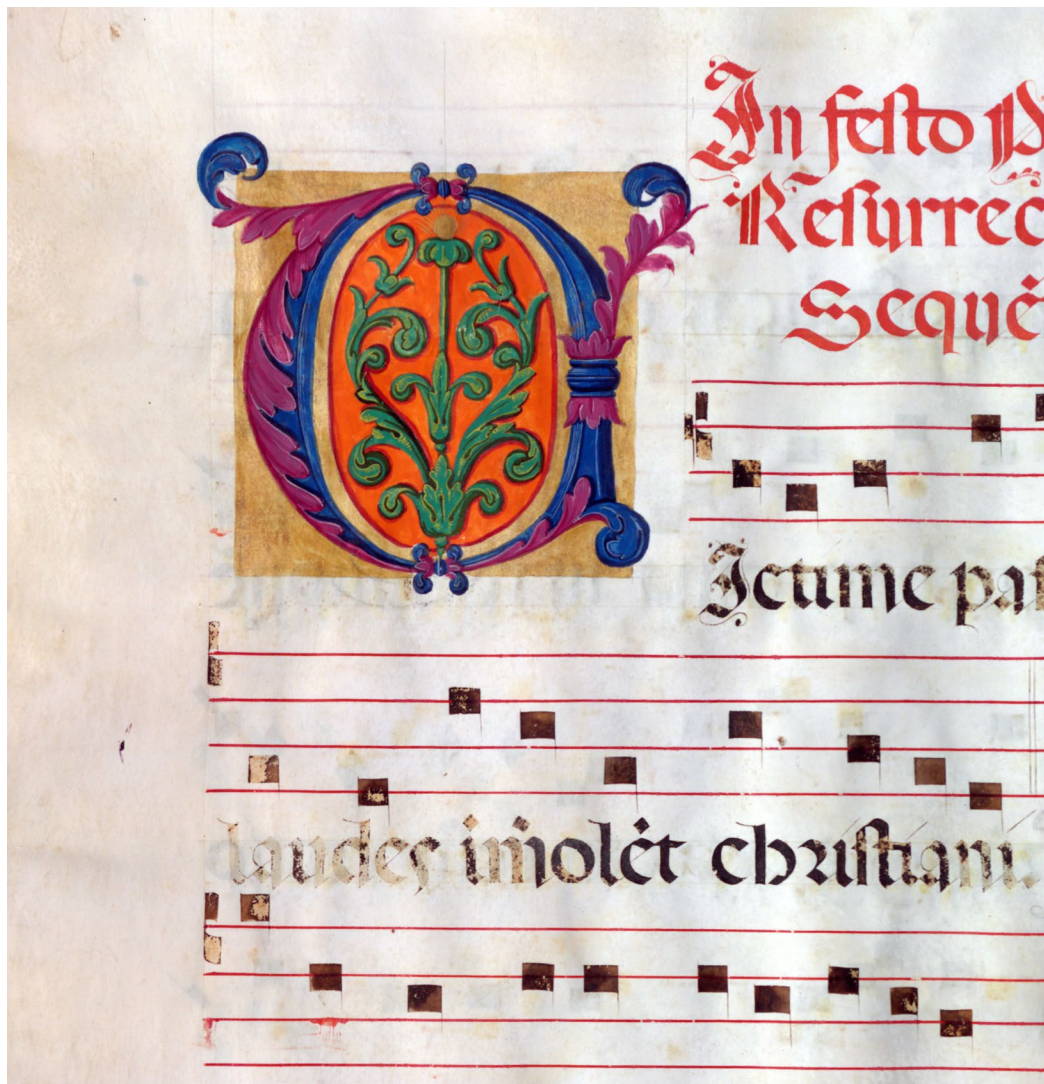 In festo P
Resurrec
Sequē
V Ictime pas
laudes im̄olēt christiani.